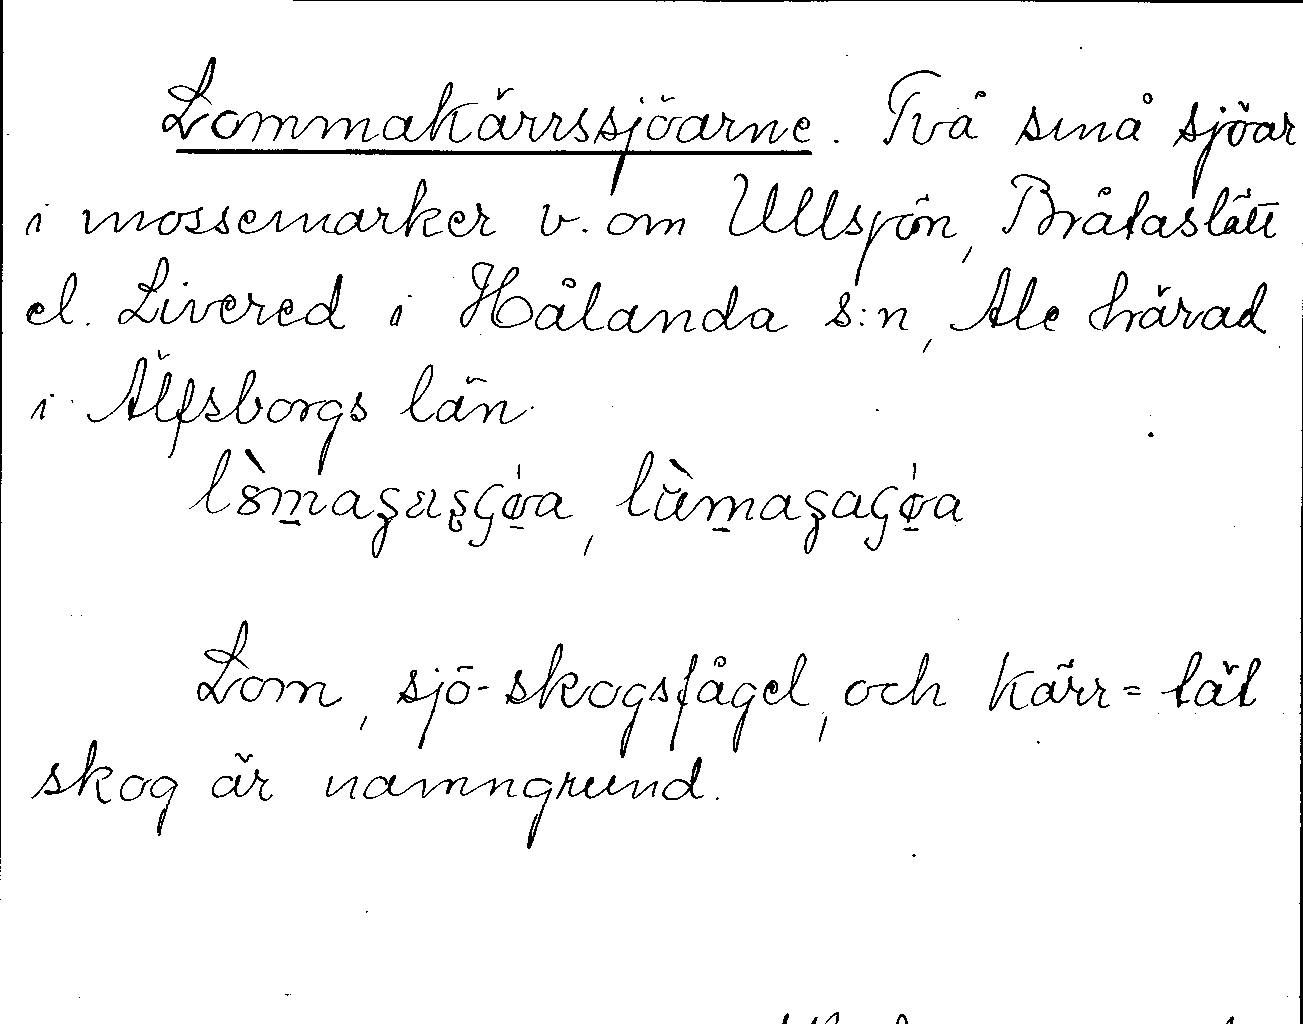 Lommakärrssjöarne. Två små sjöar
i mossemarker v. om Ullsjön, Bråtaslätt
el. Livered i Hålanda s:n, Ale härad
i Älfsborgs län.
Lom, sjö-skogsfågel, och kärr = tät
skog är namngrund.